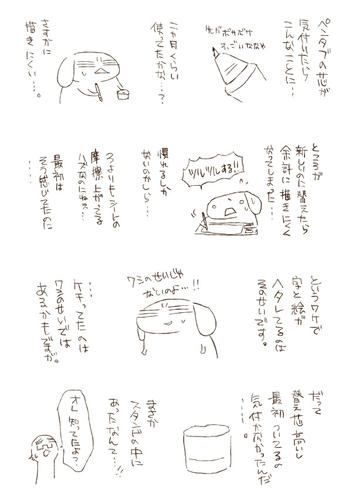 ペンタブの芯が
気付いたら
こんなことに…
先がボサボサ
すっごいななめ
二ヶ月くらい
使ってたかな…?
さすがに
描きにくい…。
ところが
新しいのに替えたら
余計に描きにくく
なってしまった…
ツルツルする!!
慣れるしか
ないのかしら…
つよりもシートの
摩擦上がってる
ハズなのにねぇ…
最初は
そう感じてたのに
…
というワケで
字と絵が
ヘタレてるのは
そのせいです。
ワシのせいじゃ
ないのよ…!!
…
ケチってたのは
ワシのせいでは
あるかも ですが。
だって
替え芯高いし
最初ついてるの
気付かなかったんだ
…。
まさか
スタンドの中に
あったなんて…
オレ知ってたよ?